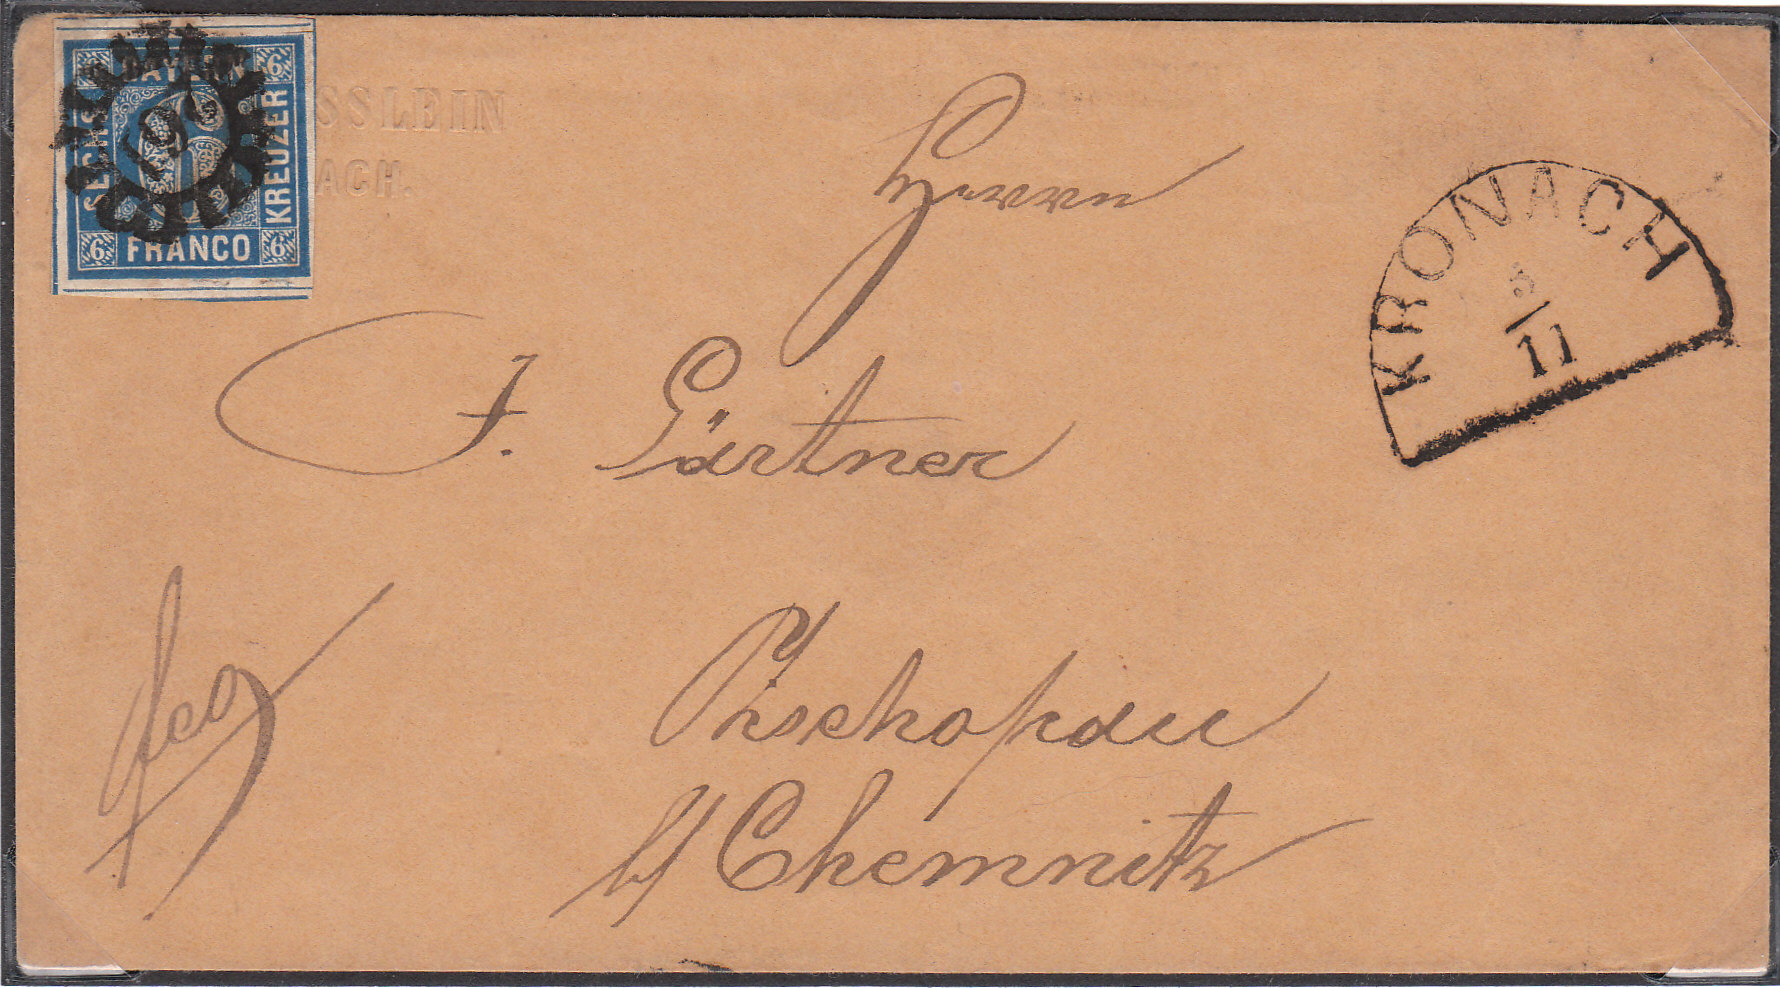 6 BAYERN 6
SECHS
KREUZER
6 FRANCO 6
SSLEIN
ACH.
Herrn
J. Gärtner
KRONACH
5/11
fco
Zschopau
b/ Chemnitz